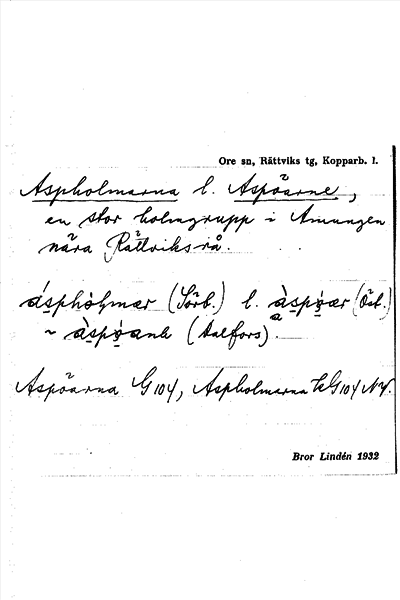 Ore sn, Rättviks tg, Kopparb. l.
Aspholmarna l. Aspöarne,
en stor holmgrupp i Amungen
nära Rättviksrå.
áspholmær (Sörb.) l. àspøær (Öst.)
~ àspøanɐ (Dalfors).
Aspöarna G 104, Aspholmarna G 104 NV.
Bror Lindén 1932